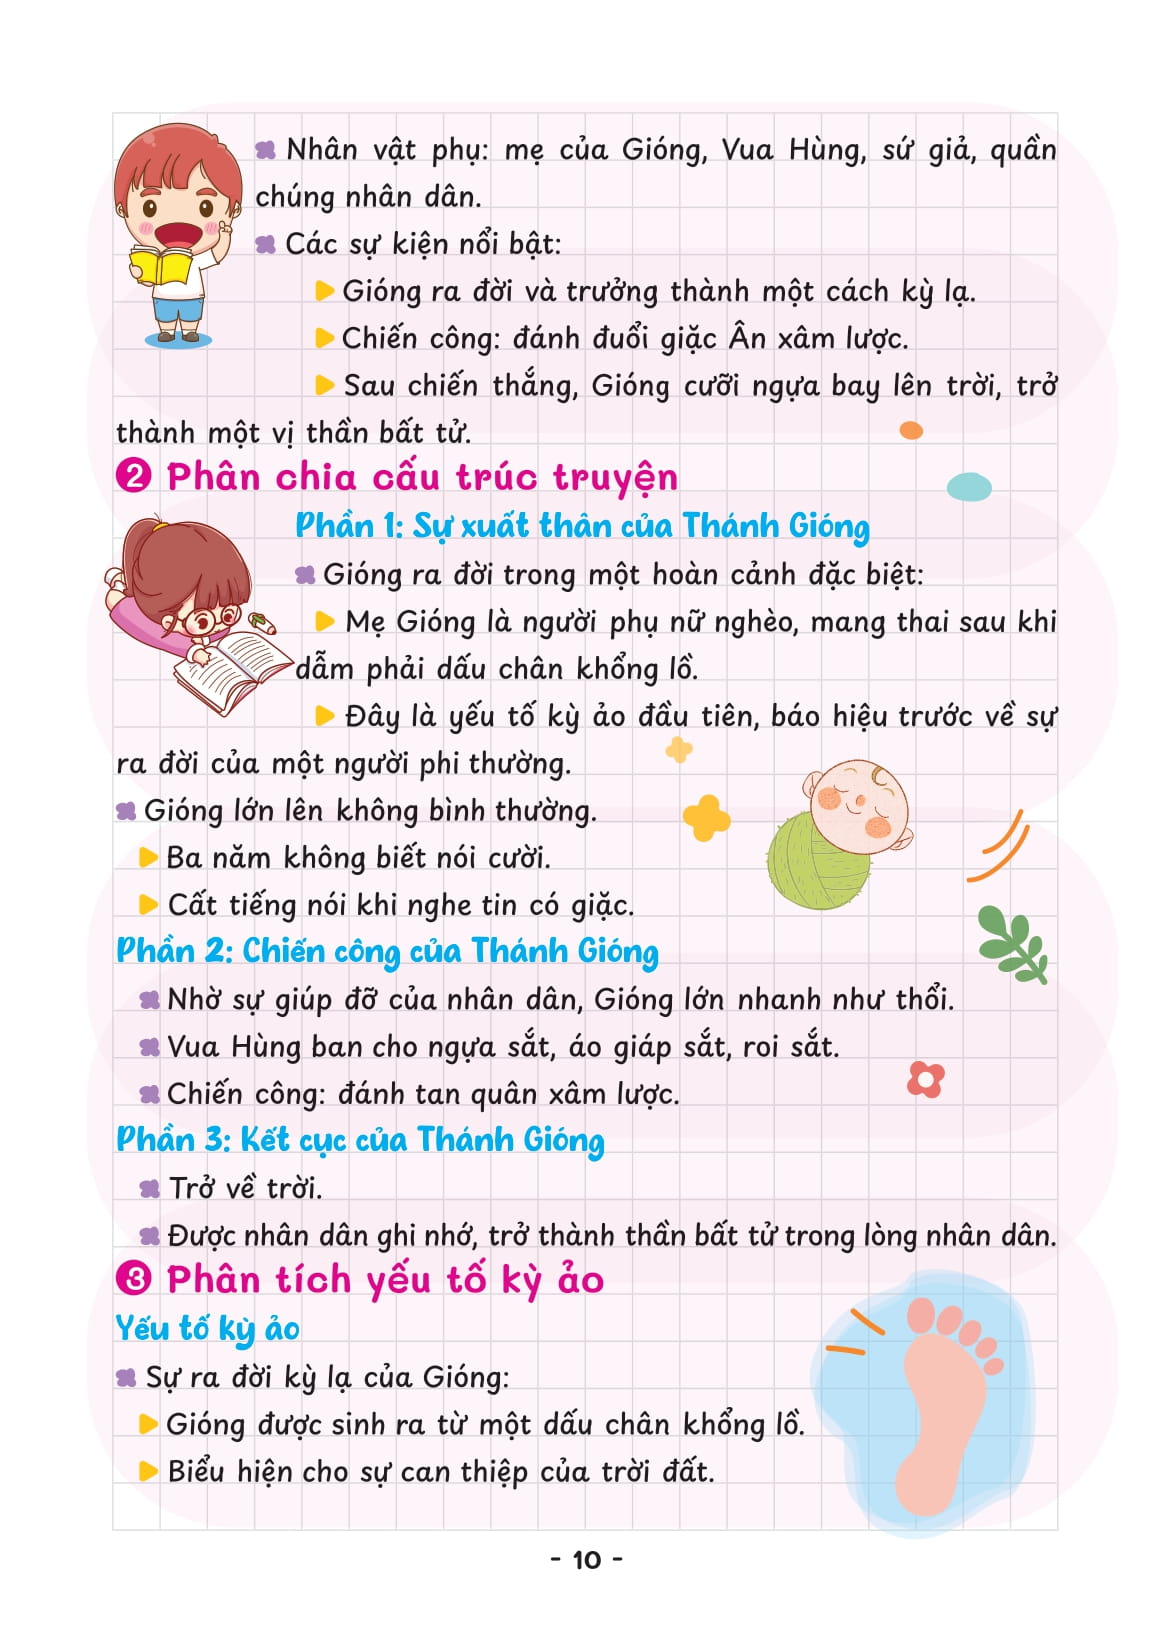 Nhân vật phụ: mẹ của Gióng, Vua Hùng, sứ giả, quần
chúng nhân dân.
Các sự kiện nổi bật:
Gióng ra đời và trưởng thành một cách kỳ lạ.
Chiến công: đánh đuổi giặc Ân xâm lược.
Sau chiến thắng, Gióng cưỡi ngựa bay lên trời, trở
thành một vị thần bất tử.
2 Phân chia cấu trúc truyện
Phần 1: Sự xuất thân của Thánh Gióng
Gióng ra đời trong một hoàn cảnh đặc biệt:
Mẹ Gióng là người phụ nữ nghèo, mang thai sau khi
dẫm phải dấu chân khổng lồ.
Đây là yếu tố kỳ ảo đầu tiên, báo hiệu trước về sự
ra đời của một người phi thường.
Gióng lớn lên không bình thường.
Ba năm không biết nói cười.
Cất tiếng nói khi nghe tin có giặc.
Phần 2: Chiến công của Thánh Gióng
Nhờ sự giúp đỡ của nhân dân, Gióng lớn nhanh như thổi.
Vua Hùng ban cho ngựa sắt, áo giáp sắt, roi sắt.
Chiến công: đánh tan quân xâm lược.
Phần 3: Kết cục của Thánh Gióng
Trở về trời.
Được nhân dân ghi nhớ, trở thành thần bất tử trong lòng nhân dân.
3 Phân tích yếu tố kỳ ảo
Yếu tố kỳ ảo
Sự ra đời kỳ lạ của Gióng:
Gióng được sinh ra từ một dấu chân khổng lồ.
Biểu hiện cho sự can thiệp của trời đất.
- 10 -